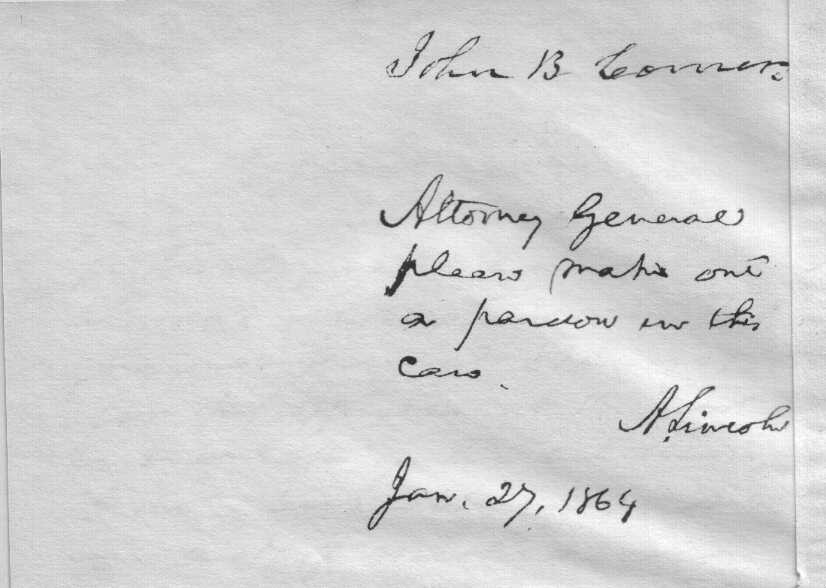 John B Corner.
Attorney General
please make out
a pardon in this
case.
A. Lincoln
Jan. 27, 1864